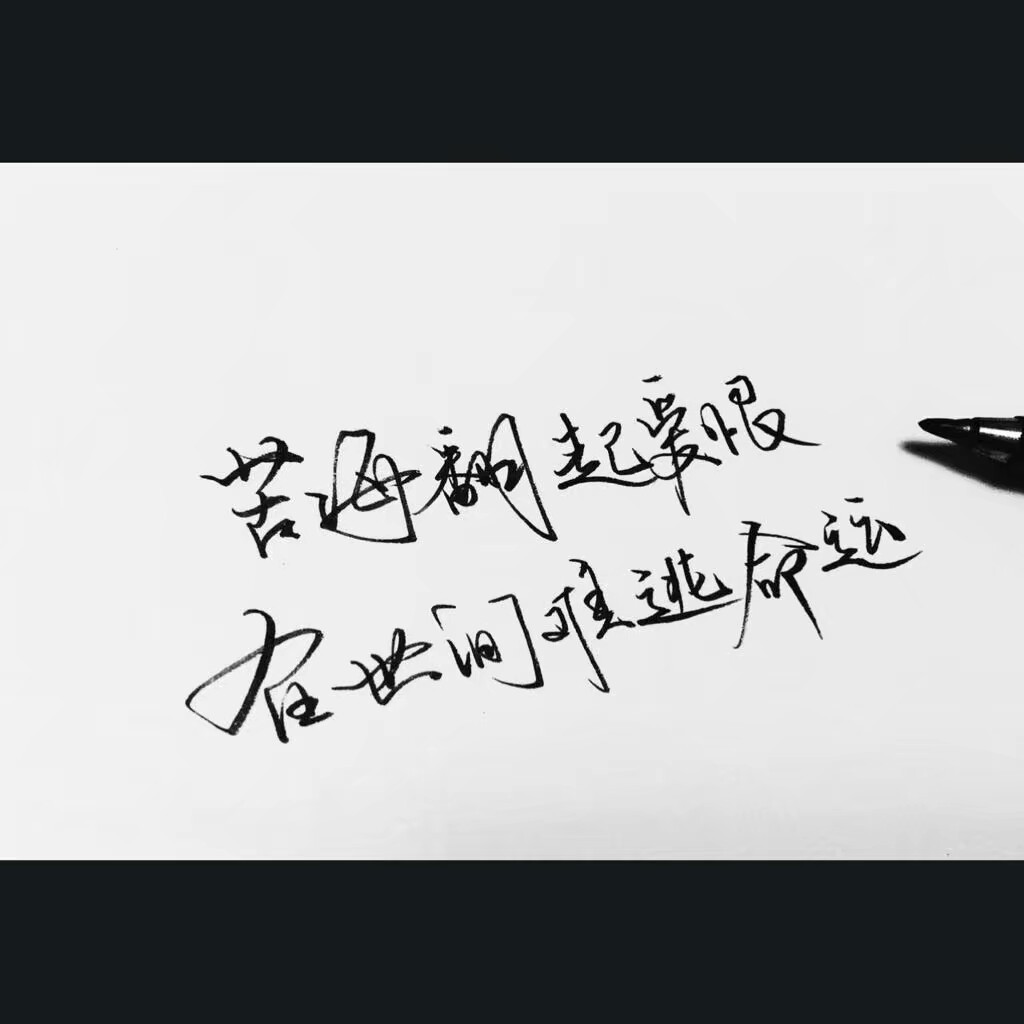 苦海翻起爱恨
在世间难逃命运